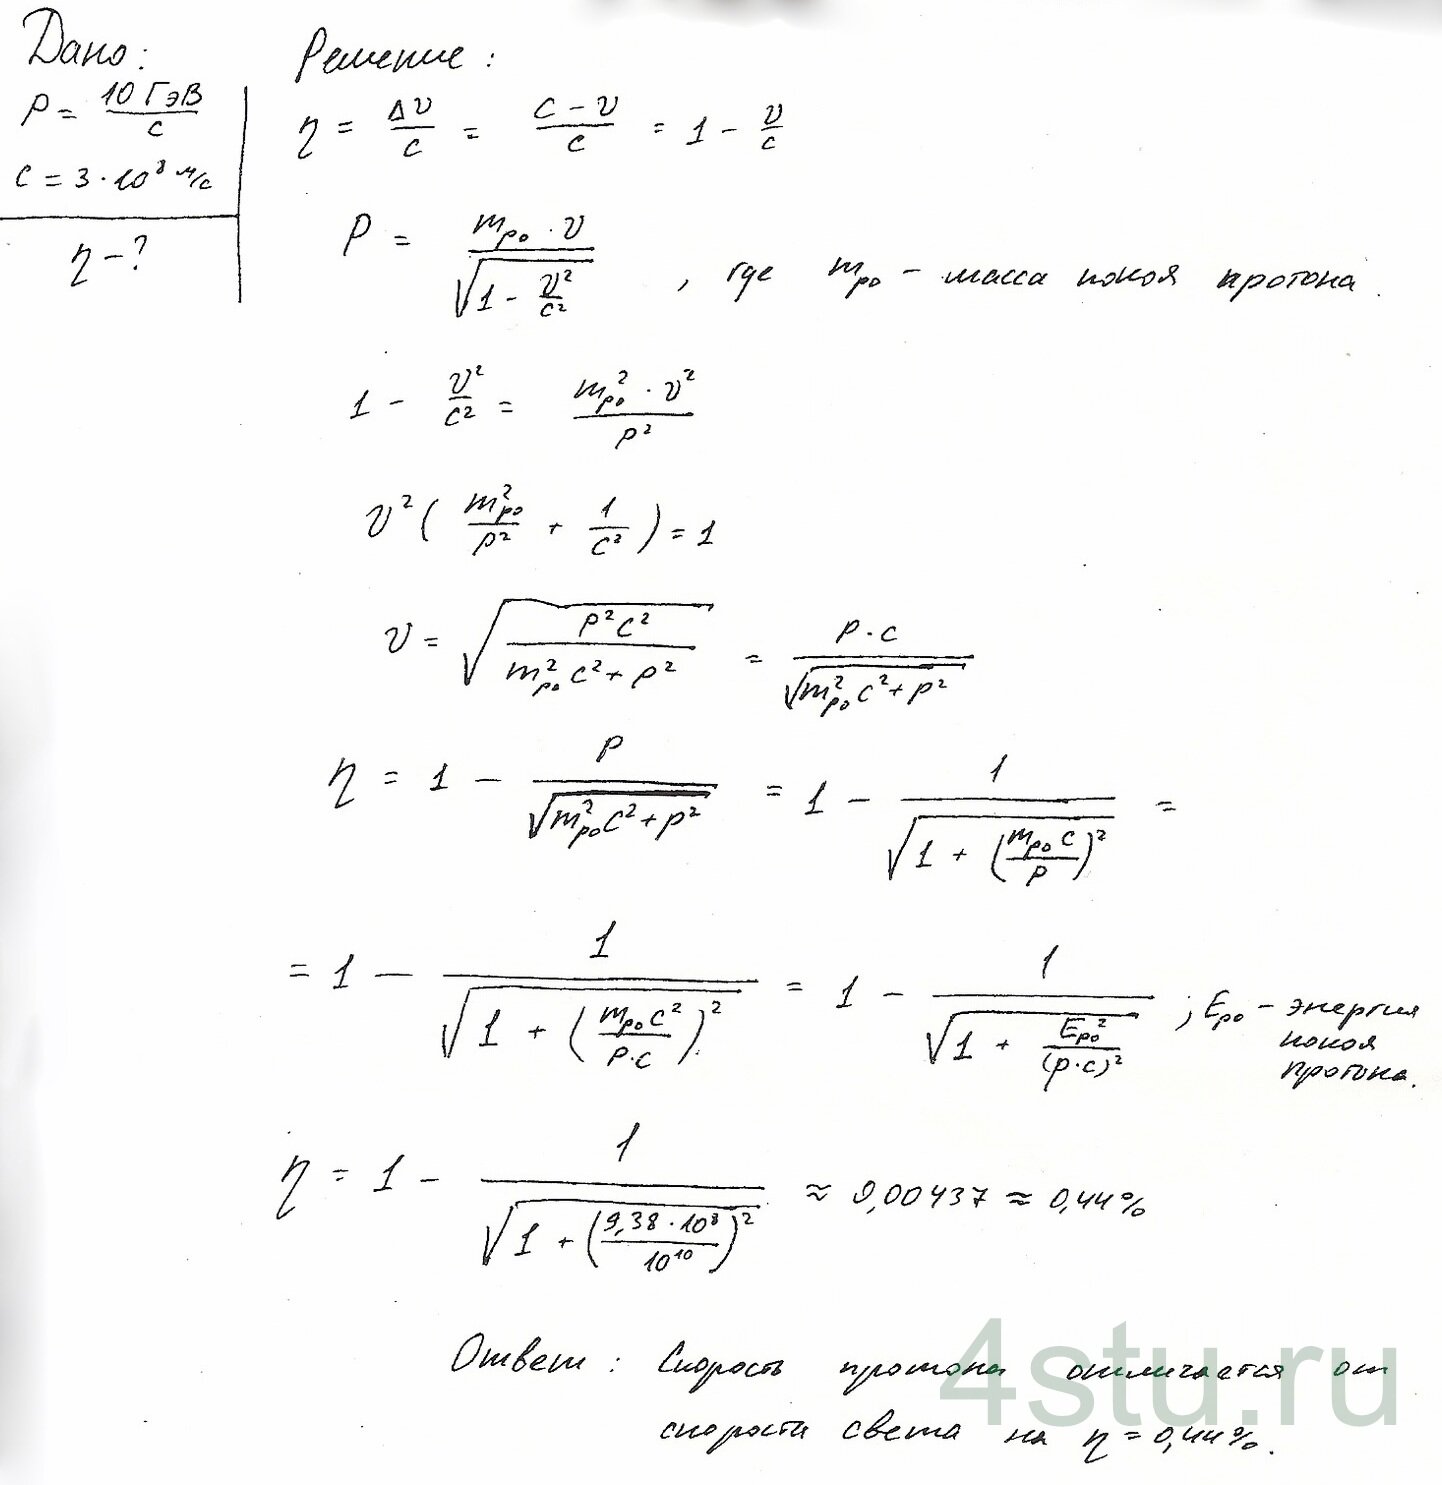 Дано:
P = 10 ГэВ / c
c = 3 · 10⁸ м/с
η - ?
Решение:
η = Δv/c = (c - v)/c = 1 - v/c
P = m_po · v / √(1 - v²/c²) , где m_po - масса покоя протона.
1 - v²/c² = m_po² · v² / p²
v² ( m²_po/p² + 1/c² ) = 1
v = √( p²c² / (m²_po c² + p²) ) = p · c / √(m²_po c² + p²)
η = 1 - p / √(m²_po c² + p²) = 1 - 1 / √(1 + (m_po c / p)²) =
= 1 - 1 / √(1 + (m_po c² / p·c)²) = 1 - 1 / √(1 + E_po² / (p·c)²) ; E_po - энергия
покоя
протона.
η = 1 - 1 / √(1 + (9,38 · 10⁸ / 10¹⁰)²) ≈ 0,00437 ≈ 0,44%
Ответ : Скорость протона отличается от
скорости света на η = 0,44%.
4stu.ru